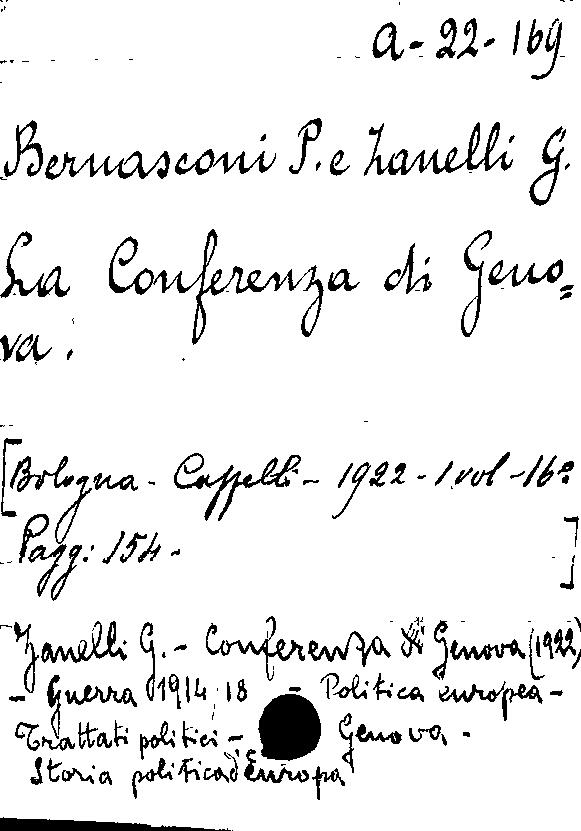 A-22-169
Bernasconi P. e Zanelli G.
La Conferenza di Geno=
va.
[Bologna - Cappelli - 1922 - 1 vol - 16°
Pagg: 154 - ]
Zanelli G. - Conferenza di Genova (1922)
- Guerra 1914, 18 - Politica europea -
Trattati politici - Genova -
Storia politica d'Europa